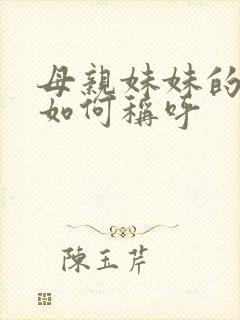 母親妹妹的
如何稱呼
陳玉芹